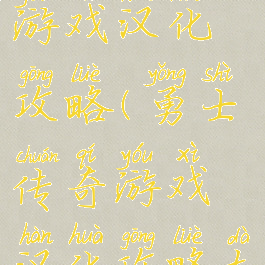 游戏汉化
gōng lüè yǒng shì
攻略(勇士
chuán qí yóu xì
传奇游戏
hàn huà gōng lüè dà
汉化攻略大